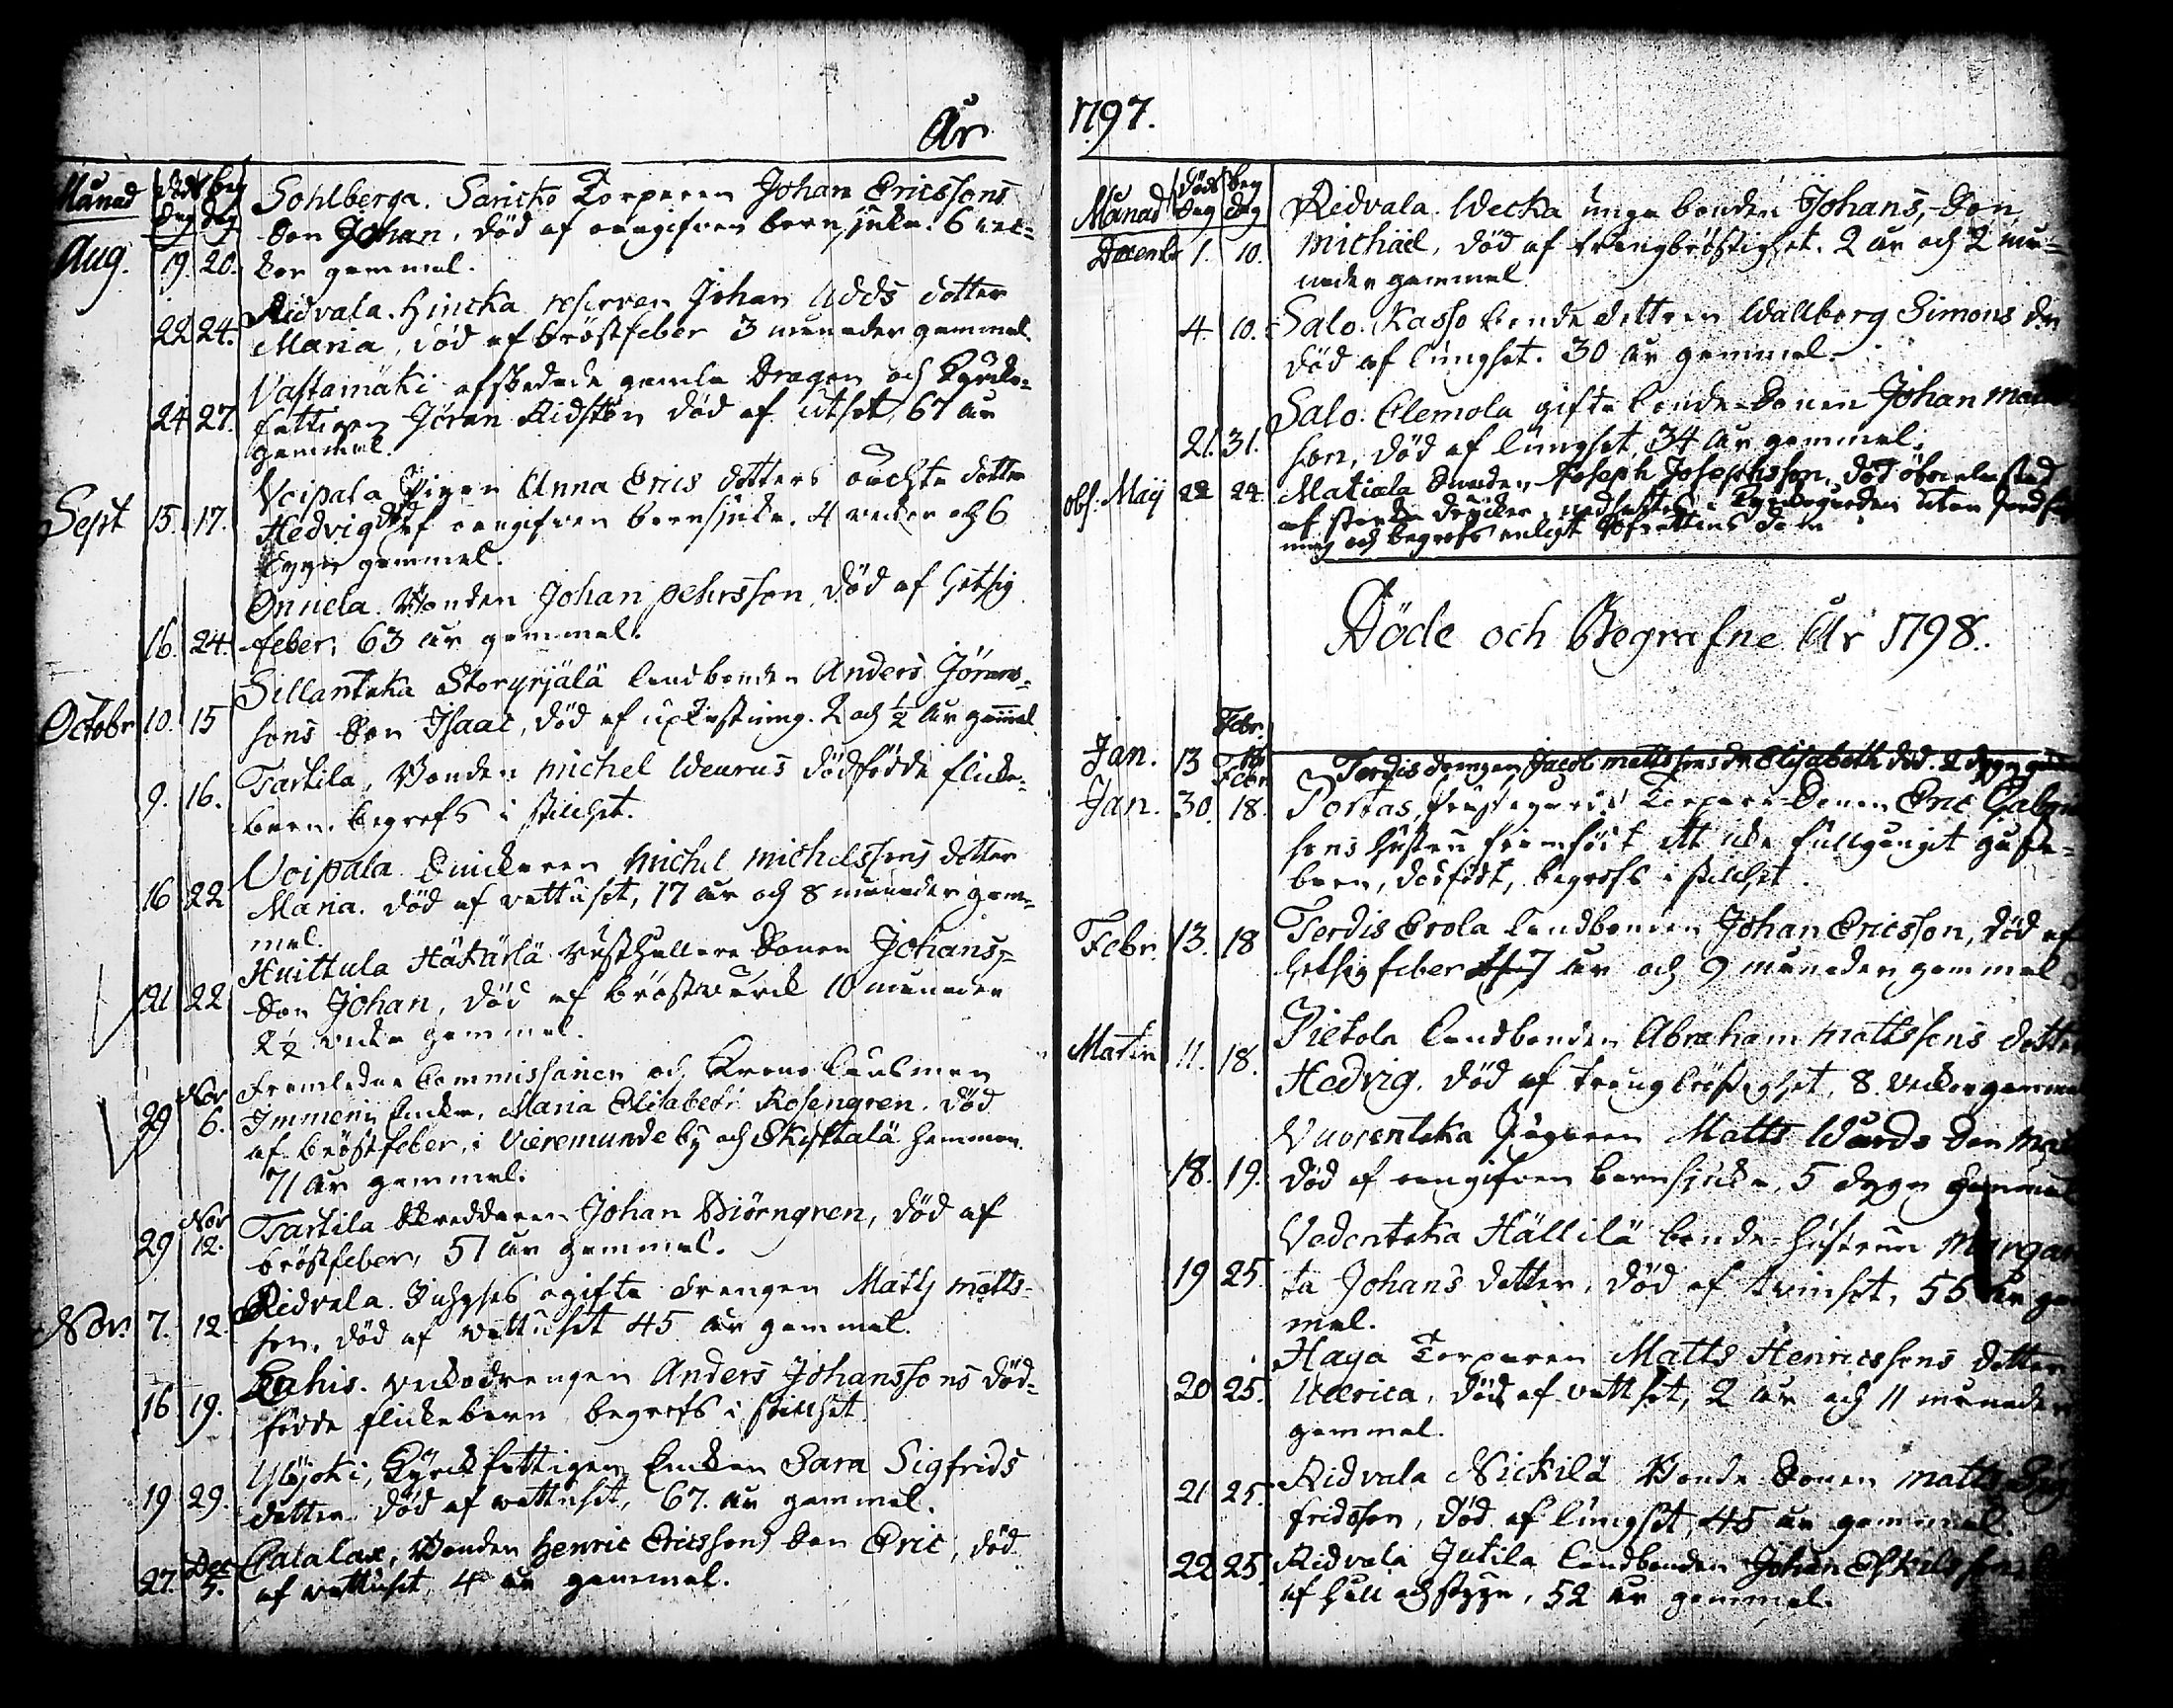 År
Månad Döds dag beg dag
Sohlberga. Saricko Torparen Johan Ericssons
Aug. 19. 20. Son Johan, död af oangifven barnsjuka. 6 vec-
kor gammal.
Ridvala. Hincka reserven Johan Udds dotter
22 24. Maria, död af bröstfeber 3 månader gammal.
Vastamäki afskedade gamla Dragon och Kyrko-
24 27. fattigen Jöran Ridsten död af 67 år
gammal.
Voipala Pigan Anna Erics dotters oächta dotter
Sept 15. 17. Hedvig död af oangifven barnsjuka. 4 veckor och 6
dygn gammal.
Onnela. Bonden Johan Pehrsson, död af hetsig
16. 24. feber, 63 år gammal.
Sillantaka Storyrjälä landbonden Anders Jörans-
Octobr 10. 15 sons Son Isaac, död af 2 och ½ år gammal
Tarttila, Bonden Michel Weurus dödfödde flicke-
9. 16. barn, begrofs i stillhet.
Voipala Michel Michelssons dotter
16 22 Maria. död af vattusot, 17 år och 8 månader gam-
mal.
Huittula Häkärlä Johans
21 22 Son Johan, död af bröstvärck 10 månader
2½ vecka gammal.
Framledne Commissarien och Krono Länsman
29 Nov 6. Immeni Enka, Maria Elisabeth Rosengren. död
af bröstfeber, i Vieremunde by och Skyttalä hemman.
71 år gammal.
29 Nov 12. Tarttila Skreddaren Johan Biörngren, död af
bröstfeber, 51 år gammal.
Ridvala. ogifte drengen Matts Matts-
Nov. 7. 12. son, död af vattusot 45 år gammal.
Lahis. Anders Johanssons död-
16 19. födde flickebarn begrofs i stillhet.
Ylöjoki, Kyrckfattigen Enkan Sara Sigfrids
19 29. dotter död af vattusot, 67. år gammal.
Bonden Henric Ericssons Son Eric, död
27. Dec 5. af vattusot, 4 år gammal.
1797.
Månad Döds dag beg dag
Ridvala. Wecka unga bonden Johans, Son
Decemb 1. 10. Michäel, död af trångbröstighet. 2 år och 2 må-
nader gammal
4. 10. Salo. Kasso bonde dottren Wallborg Simons dr
död af lungsot. 30 år gammal.
Salo. Clemola gifte bonde-Sonen Johan
21. 31. son, död af lungsot, 34 år gammal.
obs. Maij 22 24. Matiala Joseph Josephsson, död
af starka drycker, nedsattes i Kyrkogården utan
ning och begrofs enligt Hofrättens dom
Döde och Begrafne År 1798.
Febr.
Jan. 13 Terdis drengen Jacob Mattssons dr Elisabeth död. 2 dygn
Febr
Jan. 30. 18. Portas, Torpare Sonen Eric
sons hustru framfört ett icke fullgångit gosse-
barn, dödfödt, begrofs i stillhet.
Febr. 13. 18 Terdis Erola Landbonden Johan Ericsson, död af
hetsig feber 7 år och 9 månader gammal
Pietola Landbonden Abraham Mattssons dotter
Martii 11. 18. Hedvig. död af trångbröstighet, 8. veckor gammal
Vuorentaka Jägaren Matts Wards Son
18. 19. död af oangifven barnsjuka, 5 dygn gammal
Vedentaka Hällilä bonde-hustrun Marga
19 25. ta Johans dotter, död af 55 år gam
mal.
Haga Torparen Matts Henricssons dotter
20 25. Ulrica, död af vattsot, 2 år och 11 månader
gammal.
Ridvala Nickilä Bonde Sonen Matts Sig
21 25. fridsson, död af lungsot, 45 år gammal.
22 25. Ridvala Jutila landbonden Johan
af håll och stygn, 52 år gammal.